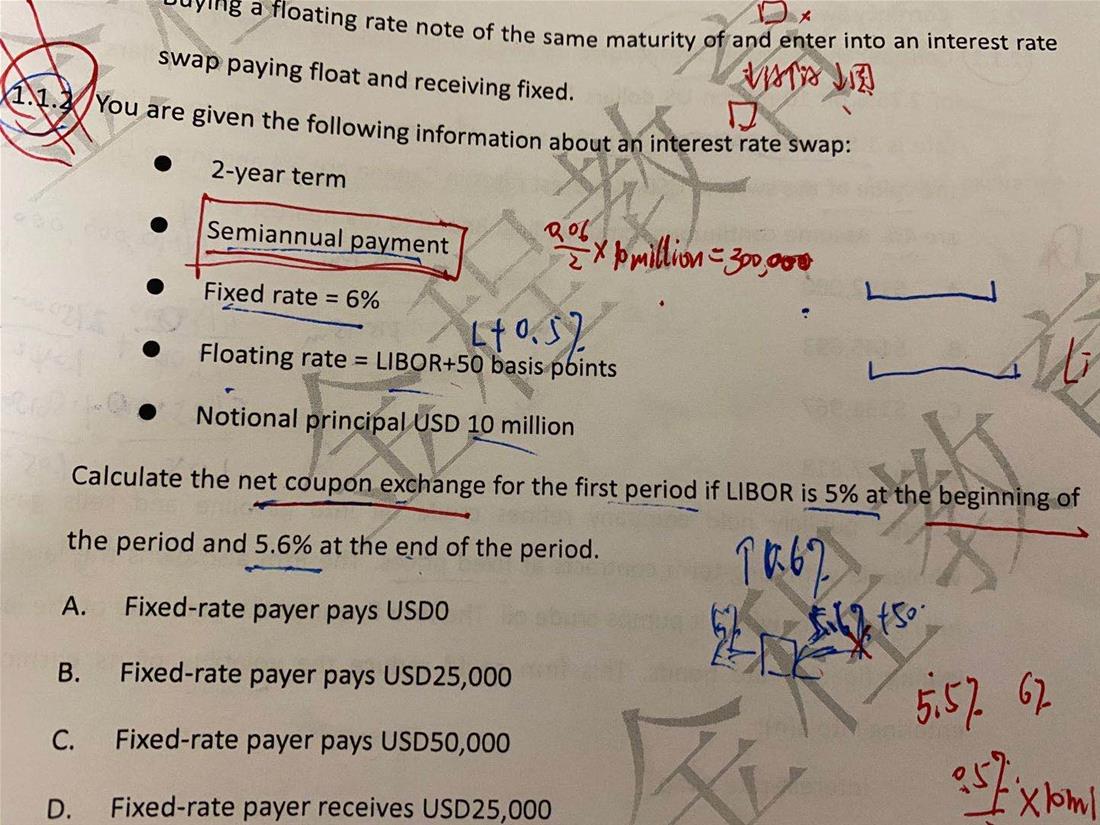 Buying a floating rate note of the same maturity of and enter into an interest rate
swap paying float and receiving fixed.
1.1.2 You are given the following information about an interest rate swap:
● 2-year term
● Semiannual payment
0.06/2 × 10 million = 300,000
● Fixed rate = 6%
L + 0.5%
● Floating rate = LIBOR+50 basis points
● Notional principal USD 10 million
Calculate the net coupon exchange for the first period if LIBOR is 5% at the beginning of
the period and 5.6% at the end of the period.
↑ 0.6%
A. Fixed-rate payer pays USD0
6% 5.6% +50
B. Fixed-rate payer pays USD25,000
5.5% 6%
C. Fixed-rate payer pays USD50,000
0.5% × 10mi
D. Fixed-rate payer receives USD25,000